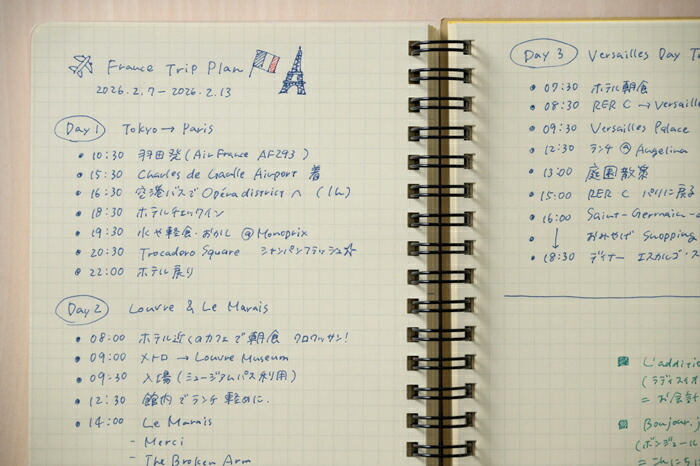 France Trip Plan
2026.2.7 - 2026.2.13
Day 1 Tokyo → Paris
• 10:30 羽田発 (Air France AF293)
• 15:30 Charles de Gaulle Airport 着
• 16:30 空港バスで Opéra district へ (1h)
• 18:30 ホテルチェックイン
• 19:30 水や軽食・おかし @ Monoprix
• 20:30 Trocadoro Square シャンパンフラッシュ☆
• 22:00 ホテル戻り
Day 2 Louvre & Le Marais
• 08:00 ホテル近くのカフェで朝食 クロワッサン!
• 09:00 メトロ → Louvre Museum
• 09:30 入場 (ミュージアムパス利用)
• 12:30 館内でランチ 軽めに.
• 14:00 Le Marais
- Merci
- The Broken Arm
Day 3 Versailles Day T
• 07:30 ホテル朝食
• 08:30 RER C → Versaill
• 09:30 Versailles Palace
• 12:30 ランチ @ Angelina
• 13:00 庭園散策
• 15:00 RER C パリに戻る
• 16:00 Saint-Germain-
• ↓ おみやげ Shopping
• 18:30 ディナー エスカルゴ・ス
L'additio
(ラディスィオ
= お会計
Bonjour, 
(ボンジュール
= こんにち